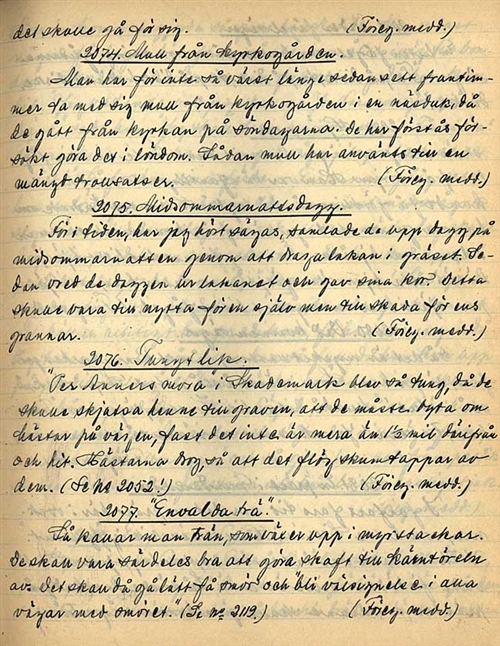 det skulle gå för sig. (Föreg. medd.)
2074. Mull från kyrkogården.
Man har för inte så värst länge sedan sett fruntim-
mer ta med sig mull från kyrkogården i en näsduk, då
de gått från kyrkan på söndagarna. De har förstås för-
sökt göra det i löndom. Sådan mull har använts till en
mängd trollsatser. (Föreg. medd.)
2075. Midsommarnattsdagg.
För i tiden, har jag hört sägas, samlade de upp dagg på
midsommarnatten genom att draga lakan i gräset. Se-
dan vred de daggen ur lakanet och gav sina kor. Detta
skulle vara till nytta för en själv men till skada för ens
grannar. (Föreg. medd.)
2076. Tungt lik.
"Per Anners mora i Skademark blev så tung, då de
skulle skjutsa henne till graven, att de måste byta om
hästar på vägen, fast det inte är mera än 1½ mil därifrån
och hit. Hästarna drog, så att det flög skumtappar av
dem. (Se No 2052!) (Föreg. medd.)
2077. "Envalda trä".
Så kallar man trän, som växer upp i myrstackar.
De skall vara särdeles bra att göra skaft till kärntöreln
av. Det skall då gå lätt få smör och "bli välsignelse i alla
vägar med smöret." (Se no 2119.) (Föreg. medd.)